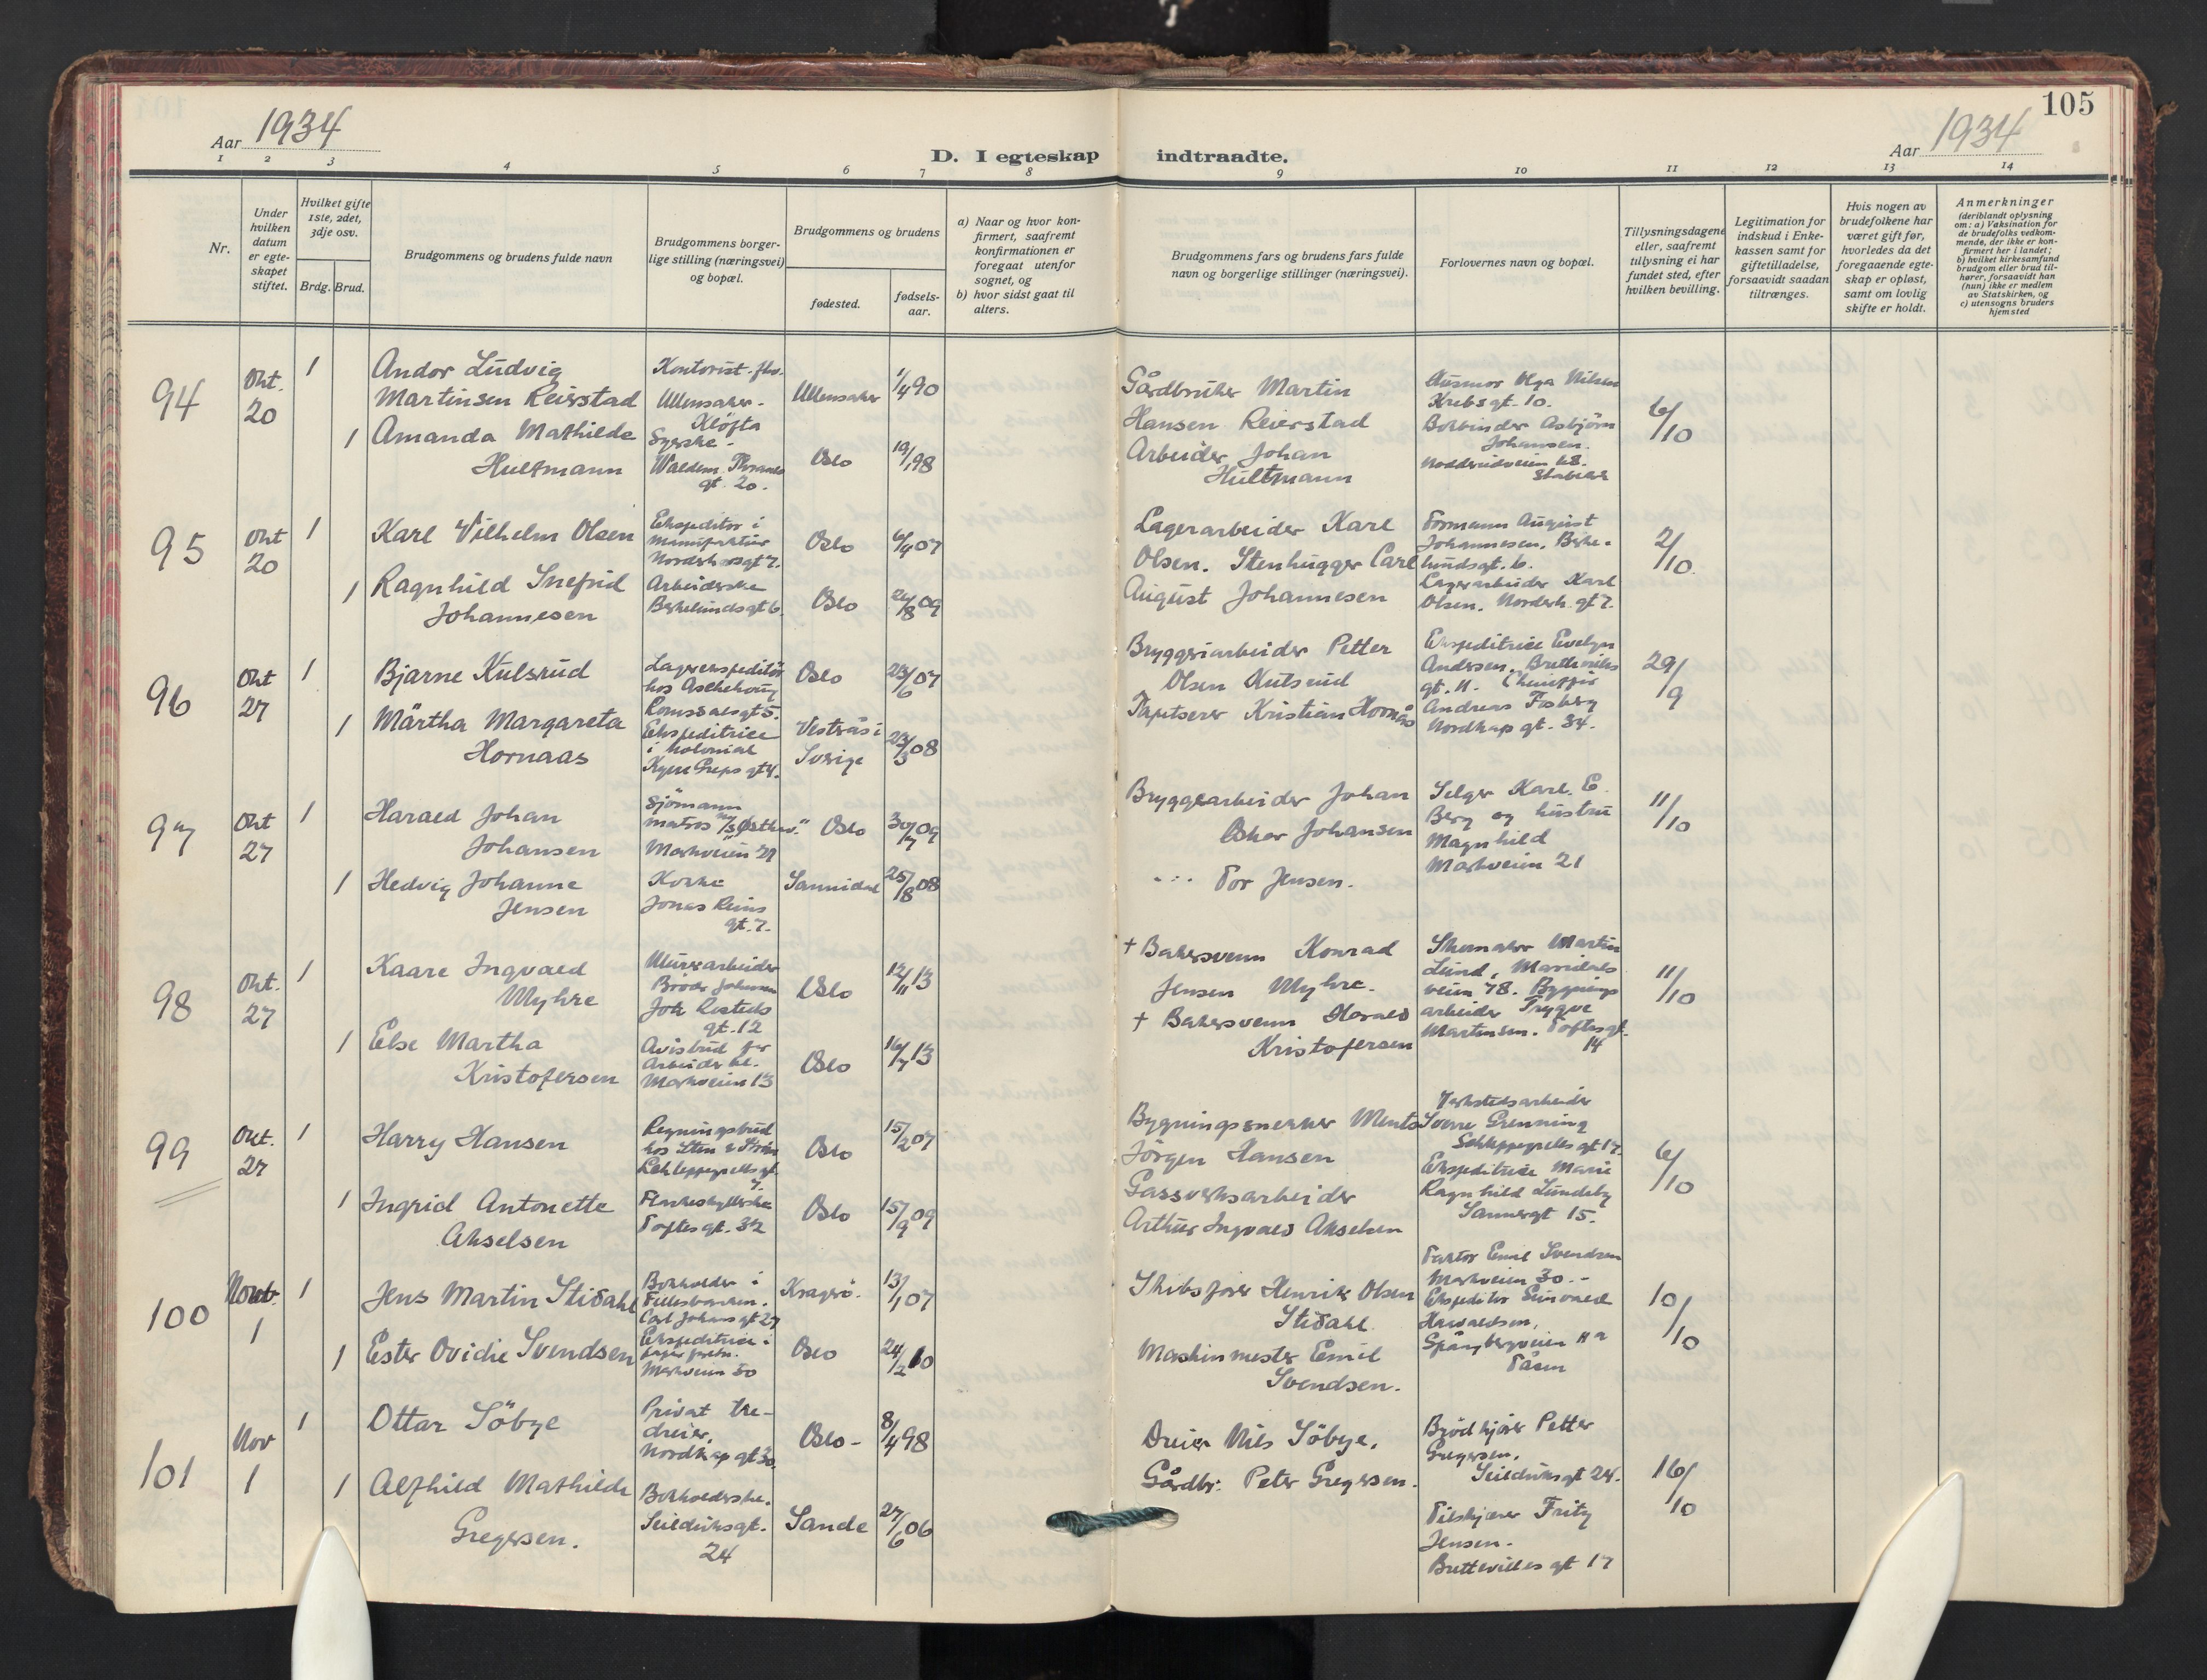 105
Aar 1934
D. I egteskap indtraadte.
Aar 1934
1 2 3 4 5 6 7 8 9 10 11 12 13 14
Nr.
Under hvilken datum er egteskapet stiftet.
Hvilket gifte 1ste, 2det, 3dje osv.
Brdg. Brud.
Brudgommens og brudens fulde navn
Brudgommens borgerlige stilling (næringsvei) og bopæl.
Brudgommens og brudens
fødested.
fødselsaar.
a) Naar og hvor konfirmert, saafremt konfirmationen er foregaat utenfor sognet, og
b) hvor sidst gaat til alters.
Brudgommens fars og brudens fars fulde navn og borgerlige stillinger (næringsvei).
Forlovernes navn og bopæl.
Tillysningsdagene eller, saafremt tillysning ei har fundet sted, efter hvilken bevilling.
Legitimation for indskud i Enkekassen samt for giftetilladelse, forsaavidt saadan tiltrænges.
Hvis nogen av brudefolkene har været gift før, hvorledes da det foregaaende egteskap er opløst, samt om lovlig skifte er holdt.
Anmerkninger
(deriblandt oplysning om: a) Vaksination for de brudefolks vedkommende, der ikke er konfirmert her i landet;
b) hvilket kirkesamfund brudgom eller brud tilhører, forsaavidt han (hun) ikke er medlem av Statskirken, og
c) utensogns bruders hjemsted
94
Okt. 20
1
Andor Ludvig
Martinsen Reierstad
Kontorist
Ullensaker - Kløfta
Ullensaker
1/4 90
1
Amanda Mathilde
Hultmann
Syerske -
Waldem. Thranes gt. 20.
Oslo
19/1 98
Gårdbruker Martin
Hansen Reierstad
Arbeider Johan
Hultmann
Olga Nilsen
Krebsgt. 10.
Bokbinder Asbjörn
Johansen.
Stabekk
6/10
95
Okt 20
1
Karl Vilhelm Olsen
Ekspeditör i
manufaktur
Norderhovsgt 7.
Oslo
6/4 07
1
Ragnhild Snefrid
Johannesen
Arbeiderske
Birkelundsgt 6.
Oslo
24/8 09
Lagerarbeider Karl
Olsen. Stenhugger Carl
August Johannesen
Formann August
Johannesen. Birke-
lundsgt. 6.
Lagerarbeider Karl
Olsen. Norderh. gt 7.
2/10
96
Okt 27
1
Bjarne Kulsrud
Lagerekspeditör
hos Aschehoug
Romsdalsgt 5.
Oslo
23/6 07
1
Märtha Margareta
Hornaas
Ekspeditrice
i kolonial
Kyrre Greps gt 4.
Vesterås i
Sverige
23/3 08
Bryggeriarbeider Petter
Olsen Kulsrud
Tapetserer Kristian Hornås
Ekspeditrice Evelyn
Andersen. Brettevilles
gt. 11. Chauffør
Andreas Fosberg
Nordkap gt. 34.
29/9
97
Okt 27
1
Harald Johan
Johansen
Sjömann
matros M/S Østhav."
Markveien 21
Oslo
30/7 09
1
Hedvig Johanne
Jensen
Kokke
Jonas Reins
gt. 7.
Sannidal
25/8 08
Bryggearbeider Johan
Oskar Johansen
- .. Tor Jensen.
Selger Karl E.
Berg og hustru
Magnhild
Markveien 21
11/10
98
Okt. 27
1
Kaare Ingvald
Myhre
Murerarbeider
Brødr. Johansen
Joh. Resteds
gt. 12
Oslo
12/11 13
1
Else Martha
Kristofersen
Avisbud for
Arbeiderbl.
Markveien 13
Oslo
16/7 13
+ Bakersvenn Konrad
Jensen Myhre.
+ Bakersvenn Harald
Kristofersen
Skomaker Martin
Lund, Maridals
veien 78. Bygnings
arbeider Trygve
Martinsen. Toftesgt.
14
11/10
99
Okt. 27
1
Harry Hansen
Regningsbud
hos Sten & Ström
Schleppegrells gt
7.
Oslo
15/2 07
1
Ingrid Antonette
Akselsen
Flaskeskyllerske
Toftes gt. 32
Oslo
15/9 09
Bygningssnekker Mentz
Jörgen Hansen
Gassverksarbeider
Arthur Ingvald Akselsen
Verkstedsarbeider
Sverre Grenning
Schleppegrells gt 17.
Ekspeditrice Marie
Ragnhild Lundeby
Sannergt 15.
6/10
100
Nov. 1
1
Jens Martin Stidahl
Bokholder i
Fellesbanken.
Carl Johans gt 27
Kragerö.
13/1 07
1
Ester Ovidie Svendsen
Ekspeditrice i
Markveien 30
Oslo
24/2 10
Skibsfører Henrik Olsen
Stidahl.
Maskinmester Emil
Svendsen.
Faktor Emil Svendsen
Markveien 30. -
Ekspeditör
Haraldsen,
Spångbergveien 11 a
Tåsen
10/10
101
Nov 1
1
Ottar Söbye
Privat tre-
dreier.
Nordkap gt 30.
Oslo -
8/4 98
1
Alfhild Mathilde
Gregersen.
Bokholderske.
Seilduksgt.
24
Sande
27/6 06
Dreier Nils Söbye.
Gårdbr: Peter Gregersen.
Brödkjörer Petter
Gregersen.
Seilduksgt 24.
Pilskjærer Fritz
Jensen.
Brettevilles gt 17
16/10